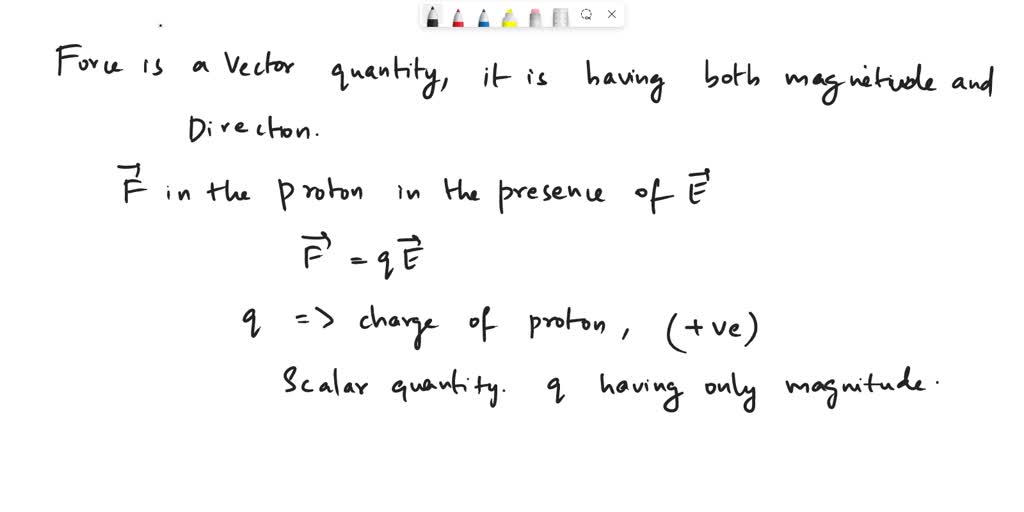 Force is a Vector quantity, it is having both magnitude and
Direction.
F⃗ in the proton in the presence of E⃗
F⃗ = qE⃗
q => charge of proton, (+ve)
Scalar quantity. q having only magnitude.